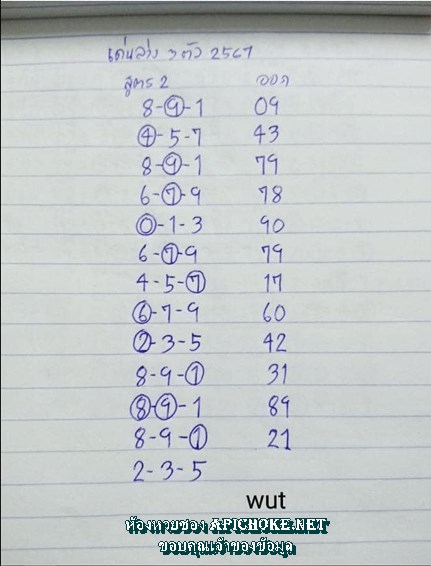 เด่นล่าง 3 ตัว 2567
สูตร 2 ออก
8-9-1 09
4-5-7 43
8-9-1 79
6-7-9 78
0-1-3 90
6-7-9 79
4-5-7 17
6-7-9 60
2-3-5 42
8-9-1 31
8-9-1 89
8-9-1 21
2-3-5
wut
ห้องหวยซอง APICHOKE.NET
ขอบคุณเจ้าของข้อมูล